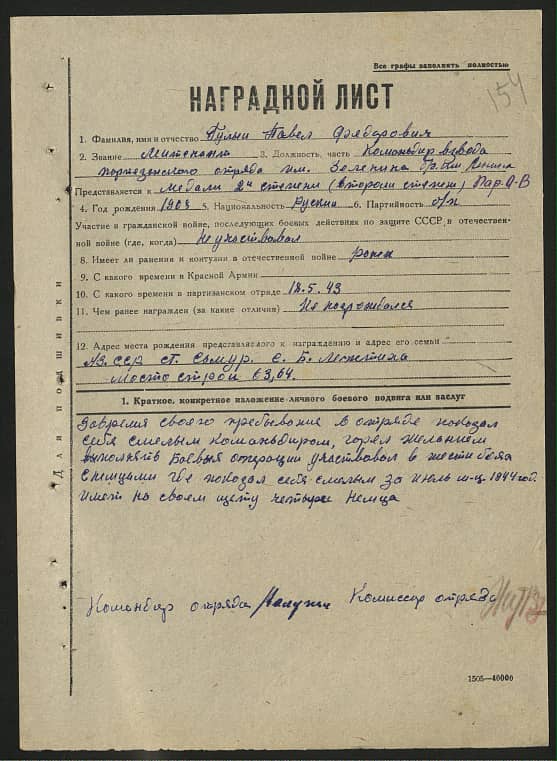 Все графы заполнять полностью
154
НАГРАДНОЙ ЛИСТ
1. Фамилия, имя и отчество Пулин Павел Фёдорович
2. Звание Лейтенант 3. Должность, часть Командир взвода
партизанского отряда им.
Представляется к Медали 2й степени (второй степени) Пар. О-В
4. Год рождения 1903 5. Национальность Руский 6. Партийность б/п
Участие в гражданской войне, последующих боевых действиях по защите СССР в отечествен-
ной войне (где, когда) Не участвовал
8. Имеет ли ранения и контузии в отечественной войне ранен
9. С какого времени в Красной Армии
10. С какого времени в партизанском отряде 18.5.43
11. Чем ранее награжден (за какие отличия) Не нагрождался
12. Адрес места рождения представляемого к награждению и адрес его семьи
Аз. ССР ст. с. Б.
Мосто строй 63,64.
1. Краткое, конкретное изложение личного боевого подвига или заслуг
Вовремя своего пребывания в отряде показал
себя смелым командиром, горел желанием
выполнять боевыя операции участвовал в шести боях
с немцами где показал себя смелым за Июль м-ц. 1944 год.
Имет на своем щету четыре немца
Командир отряда Комиссар отряда
Для подшивки
1505—40000